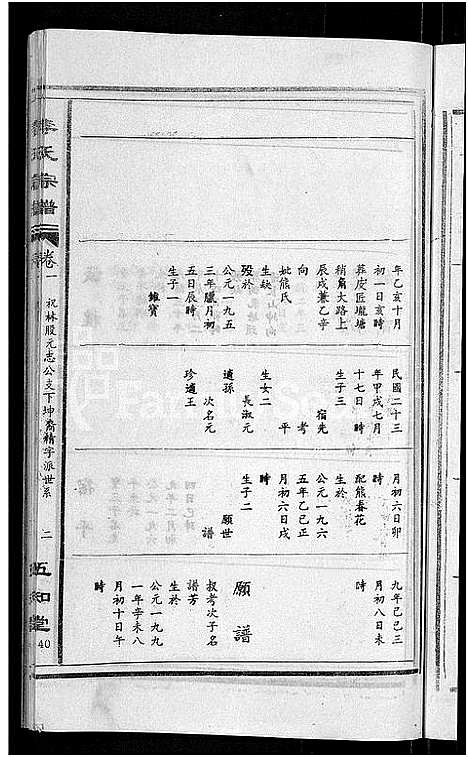 氏宗譜
卷一
祝林股元志公支下坤裔精字派世系
二
五知堂
40
年乙亥十月
初一日亥時
葬皮匠壠塘
稍角大路上
辰戌兼乙辛
向
妣熊氏
生缺
歿於
公元一九五
三年臘月初
五日辰時
生子一
維寶
民國二十三
年甲戌七月
十七日 時
生子三
宿先
考
平
生女二
長淑元
次名元
遺孫
珍適王
月初六日卯
時
配熊春花
生於
公元一九六
五年乙巳正
月初六日戌
時
生子二
願世
譜
九年己巳三
月初八日未
時
願譜
叔考次子名
譜芳
生於
公元一九九
一年辛未八
月初十日午
時